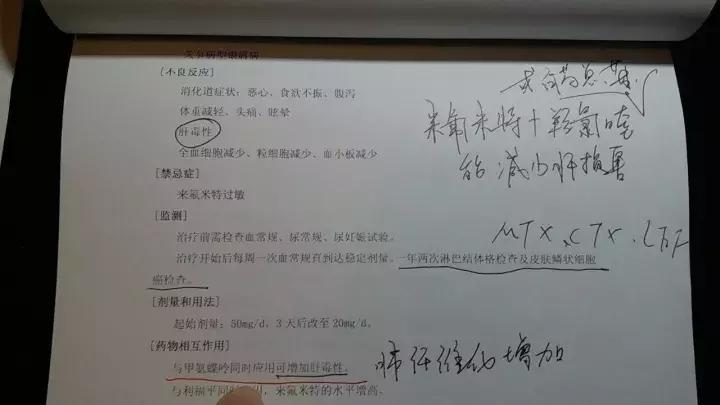 关节病型银屑病
[不良反应]
消化道症状：恶心、食欲不振、腹泻
体重减轻、头痛、眩晕
肝毒性
全血细胞减少、粒细胞减少、血小板减少
[禁忌症]
来氟米特过敏
[监测]
治疗前需检查血常规、尿常规、尿妊娠试验。
治疗开始后每周一次血常规直到达稳定剂量。一年两次淋巴结体格检查及皮肤鳞状细胞
癌检查。
[剂量和用法]
起始剂量：50mg/d，3天后改至20mg/d。
[药物相互作用]
与甲氨蝶呤同时应用可增加肝毒性。
与利福平同时，来氟米特的水平增高。
来氟米特+羟氯喹
能减少肝损害
MTX、CTX、LEF
肺纤维化增加